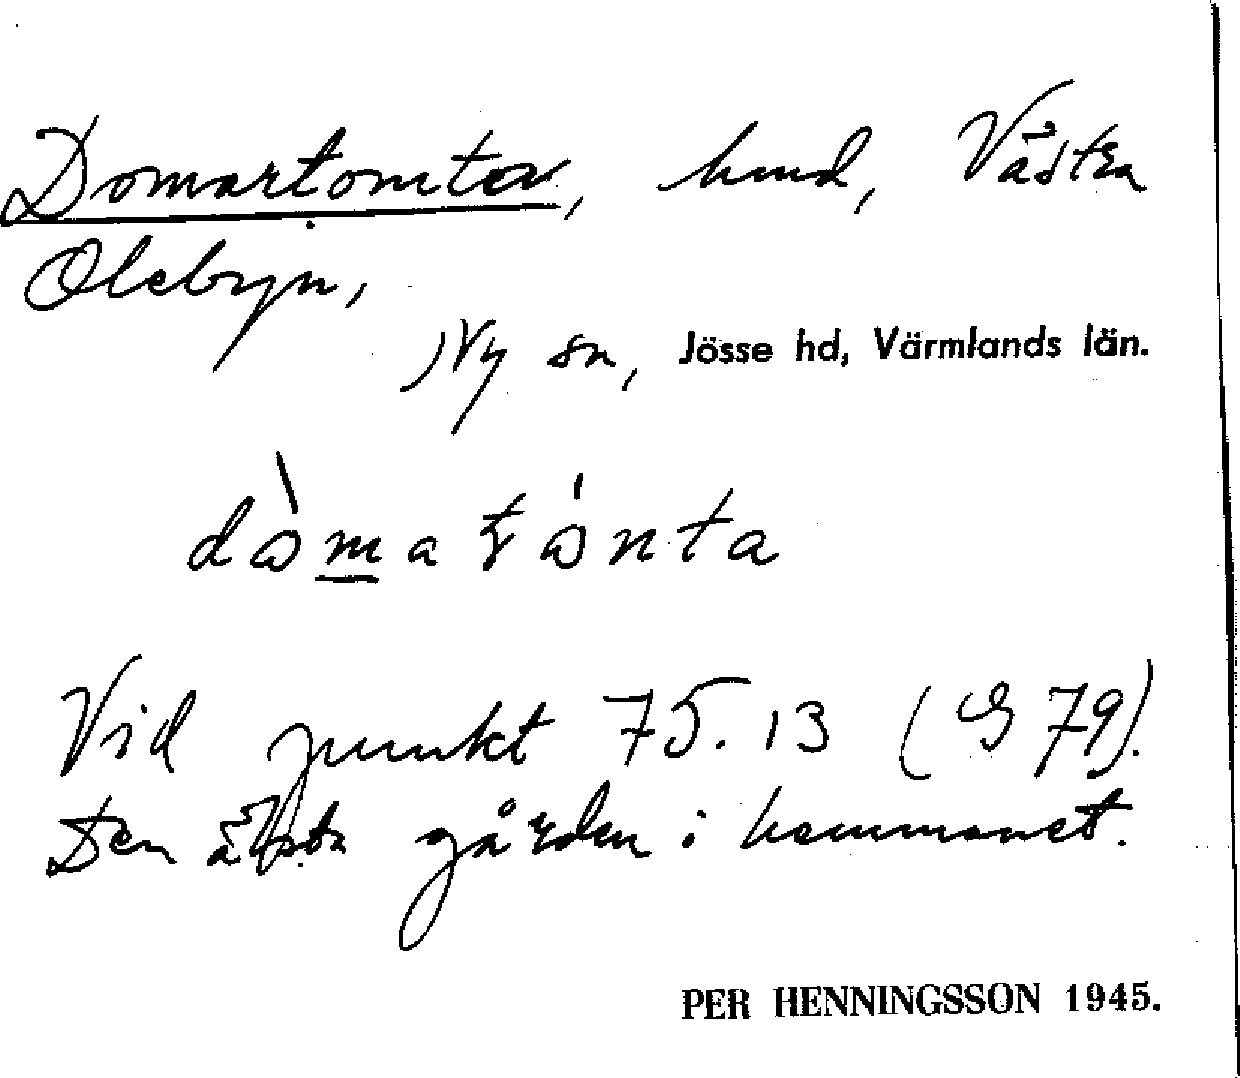 Domartomten, hmd, Västra
Olebyn,
Ny sn, Jösse hd, Värmlands län.
dòmatónta
Vid punkt 75.13 (G 79).
Den älsta gården i hemmanet.
PER HENNINGSSON 1945.